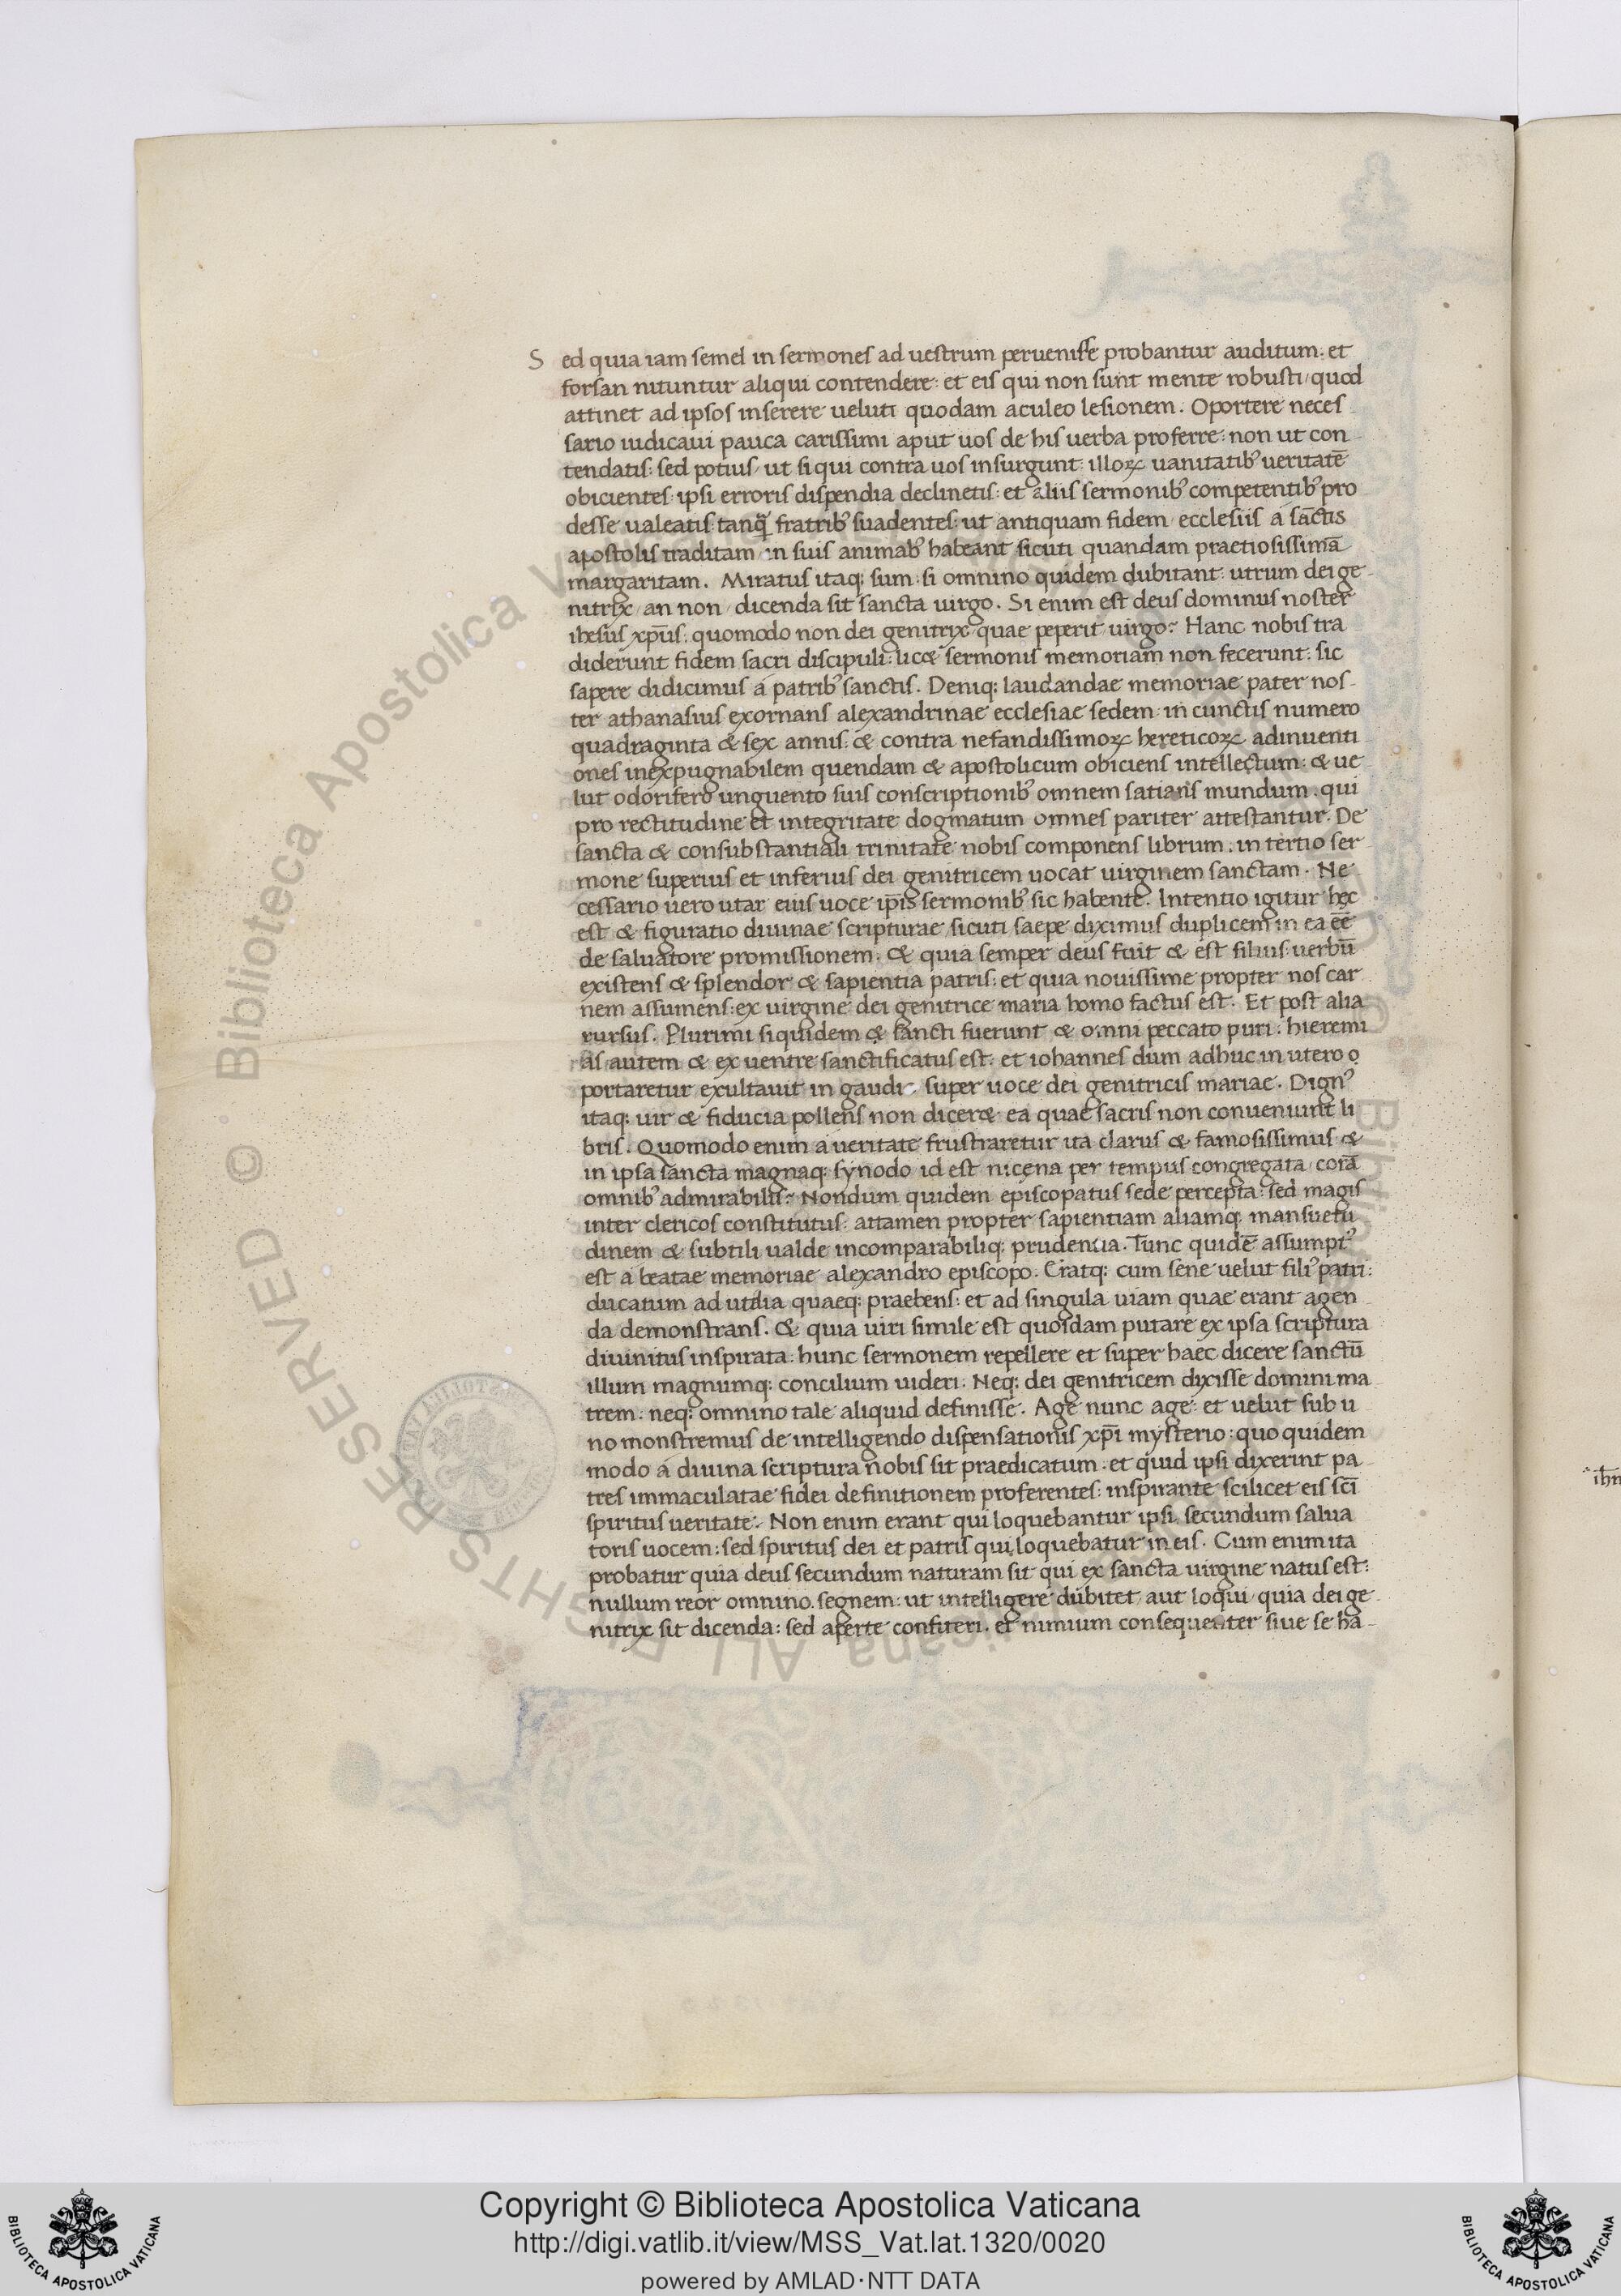 Sed quia iam semel in sermones ad uestrum peruenisse probantur auditum: et
forsan nituntur aliqui contendere: et eis qui non sunt mente robusti quod
attinet ad ipsos inserere ueluti quodam aculeo lesionem. Oportere neces
sario iudicaui pauca carissimi aput uos de his uerba proferre: non ut con
tendatis: sed potius ut si qui contra uos insurgunt: illoꝝ uanitatibꝰ ueritatē
obicientes: ipsi erroris dispendia declinetis: et aliis sermonibꝰ competentibꝰ pro
desse ualeatis: tanq̄ fratribꝰ suadentes: ut antiquam fidem ecclesiis á sāctis
apostolis traditam in suis animabꝰ habeant sicuti quandam praetiosissimā
margaritam. Miratus itaq; sum: si omnino quidem dubitant: utrum dei ge-
nitrix an non dicenda sit sancta uirgo. Si enim est deus dominus noster
ihesus xp̄us: quomodo non dei genitrix quae peperit uirgo? Hanc nobis tra
diderunt fidem sacri discipuli: licet sermonis memoriam non fecerunt: sic
sapere didicimus á patribꝰ sanctis. Deniq; laudandae memoriae pater nos-
ter athanasius exornans alexandrinae ecclesiae sedem in cunctis numero
quadraginta & sex annis: & contra nefandissimoꝝ hereticoꝝ adinuenti
ones inexpugnabilem quendam & apostolicum obiciens intellectum: & ue
lut odorifero unguento suis conscriptionibꝰ omnem satians mundum. qui
pro rectitudine et integritate dogmatum omnes pariter attestantur. De
sancta & consubstantiali trinitate nobis componens librum. in tertio ser
mone superius et inferius dei genitricem uocat uirginem sanctam. Ne
cessario uero utar eius uoce ip̄is sermonibꝰ sic habente. Intentio igitur hęc
est & figuratio diuinae scripturae sicuti saepe diximus duplicem in ea eē
de saluatore promissionem. & quia semper deus fuit & est filius uerbū
existens & splendor & sapientia patris: et quia nouissime propter nos car
nem assumens: ex uirgine dei genitrice maria homo factus est. Et post alia
rursus. Plurimi siquidem & sancti fuerunt & omni peccato puri. hieremi
as autem & ex uentre sanctificatus est: et iohannes dum adhuc in utero
portaretur exultauit in gaudi super uoce dei genitricis mariae. Dignꝰ
itaq; uir & fiducia pollens non diceret ea quae sacris non conueniunt li
bris. Quomodo enim a ueritate frustraretur ita clarus & famosissimus &
in ipsa sancta magnaq; synodo id est nicena per tempus congregata corā
omnibꝰ admirabilis? Nondum quidem episcopatus sede percepta: sed magis
inter clericos constitutus: attamen propter sapientiam aliamq; mansuetu
dinem & subtili ualde incomparabiliq; prudentia. Tunc quidē assumptꝰ
est a beatae memoriae alexandro episcopo. Eratq; cum sene uelut filiꝰ patri:
ducatum ad utilia quaeq; praebens: et ad singula uiam quae erant agen
da demonstrans. & quia uiri simile est quosdam putare ex ipsa scriptura
diuinitus inspirata: hunc sermonem repellere et super haec dicere sanctū
illum magnumq; concilium uideri. Neq; dei genitricem dixisse domini ma
trem: neq; omnino tale aliquid definisse. Age nunc age: et uelut sub u
no monstremus de intelligendo dispensationis xp̄i mysterio: quo quidem
modo á diuina scriptura nobis sit praedicatum. et quid ipsi dixerint pa
tres immaculatae fidei definitionem proferentes: inspirante scilicet eis sc̄i
spiritus ueritate. Non enim erant qui loquebantur ipsi, secundum salua
toris uocem: sed spiritus dei et patris qui loquebatur in eis. Cum enim ita
probatur quia deus secundum naturam sit qui ex sancta uirgine natus est:
nullum reor omnino segnem: ut intelligere dubitet aut loqui quia dei ge-
nitrix sit dicenda: sed aperte confiteri. et nimium consequenter siue se ha-
ih̄n
© Biblioteca Apostolica Vaticana ALL RIGHTS RESERVED
Copyright © Biblioteca Apostolica Vaticana
http://digi.vatlib.it/view/MSS_Vat.lat.1320/0020
powered by AMLAD·NTT DATA
BIBLIOTECA APOSTOLICA VATICANA
BIBLIOTECA APOSTOLICA VATICANA